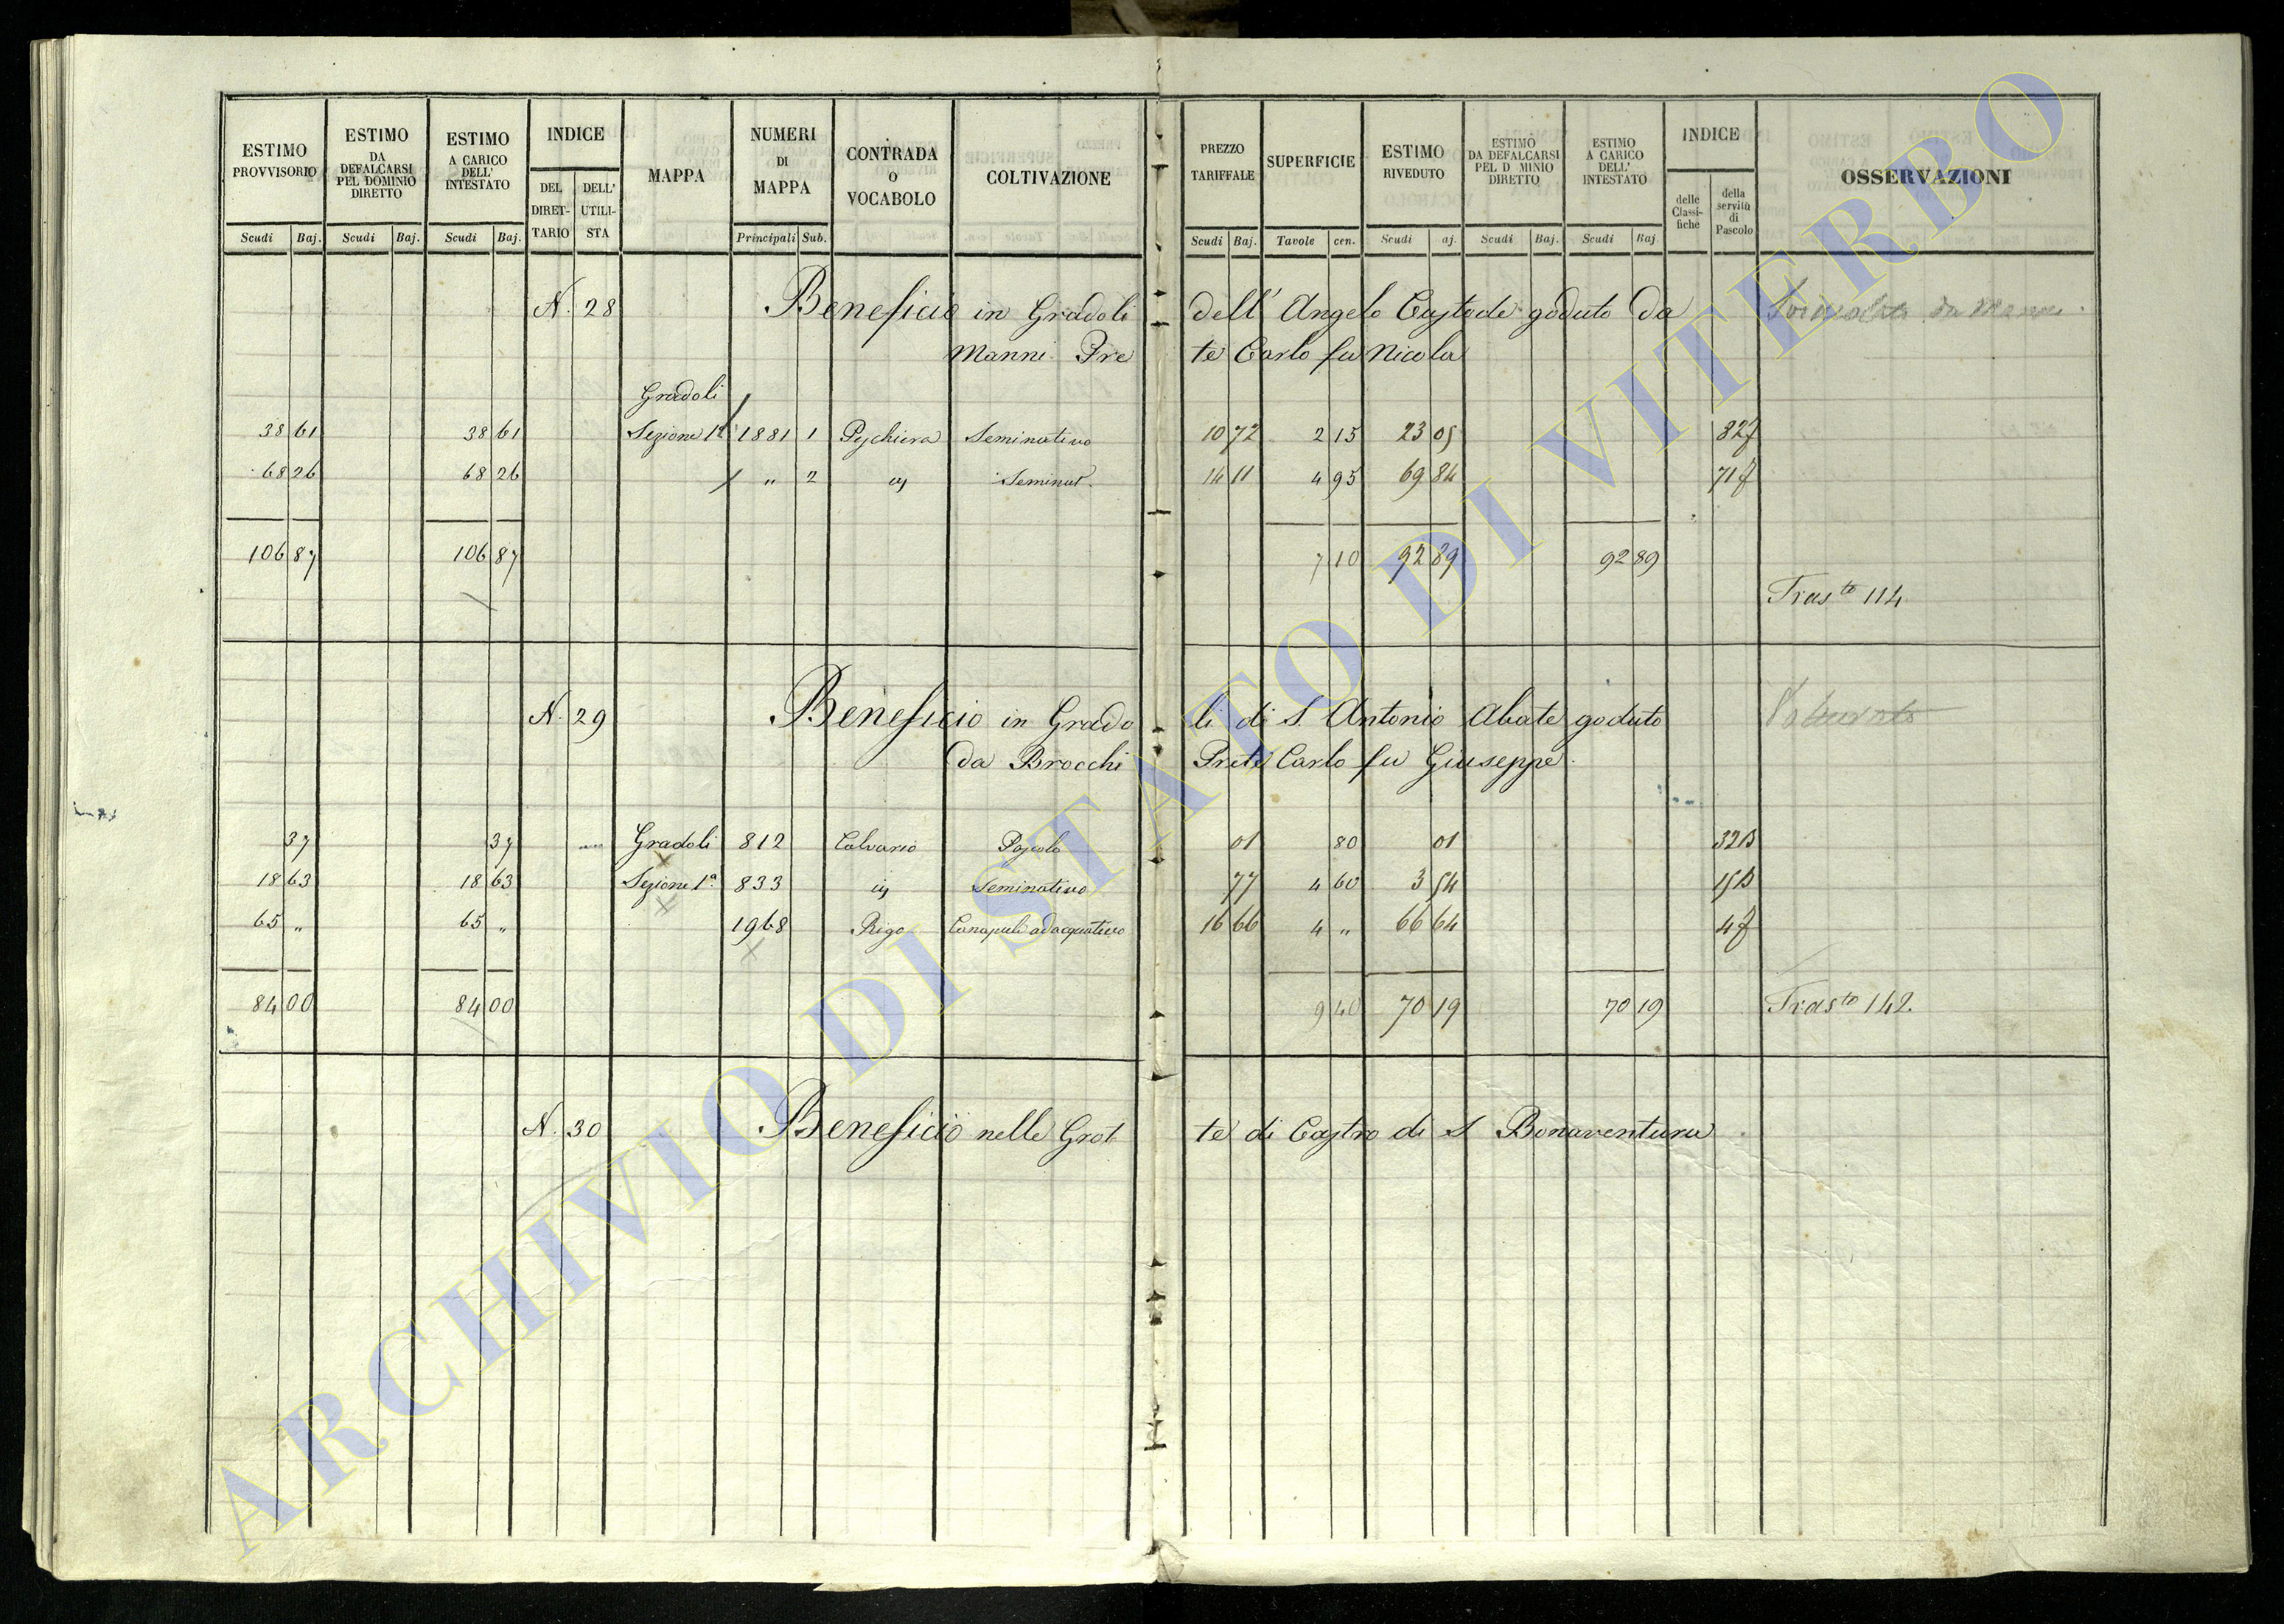 ESTIMO PROVVISORIO | ESTIMO DA DEFALCARSI PEL DOMINIO DIRETTO | ESTIMO A CARICO DELL' INTESTATO | INDICE | MAPPA | NUMERI DI MAPPA | CONTRADA O VOCABOLO | COLTIVAZIONE | PREZZO TARIFFALE | SUPERFICIE | ESTIMO RIVEDUTO | ESTIMO DA DEFALCARSI PEL D MINIO DIRETTO | ESTIMO A CARICO DELL' INTESTATO | INDICE | OSSERVAZIONI
DEL DIRET-TARIO | DELL' UTILI-STA | delle Classi-fiche | della servitù di Pascolo
Scudi | Baj. | Scudi | Baj. | Scudi | Baj. | Principali | Sub. | Scudi | Baj. | Tavole | cen. | Scudi | aj. | Scudi | Baj. | Scudi | Baj
N. 28 Beneficio in Gradoli dell' Angelo Custode goduto da
Manni Prete Carlo fu Nicola
Gradoli
38 61 | 38 61 | Sezione 1ª | 1881 | 1 | Peschiera | Seminativo | 10 72 | 2 15 | 23 05 | 82f
68 26 | 68 26 | " | 2 | Seminat. | 14 11 | 4 95 | 69 84 | 71f
106 87 | 106 87 | 7 10 | 92 89 | 92 89
Tras.to 114
N. 29 Beneficio in Gradoli di S. Antonio Abate goduto
da Brocchi Prete Carlo fu Giuseppe
37 | 37 | Gradoli | 812 | Calvario | Pascolo | 01 | 80 | 01 | 32B
18 63 | 18 63 | Sezione 1ª | 833 | Seminativo | 77 | 4 60 | 3 54 | 15B
65 " | 65 " | 1968 | Rigo | Canapuli adacquativo | 16 66 | 4 " | 66 64 | 4f
84 00 | 84 00 | 9 40 | 70 19 | 70 19 | Tras.to 142.
N. 30 Beneficio nelle Grotte di Castro di S Bonaventura
ARCHIVIO DI STATO DI VITERBO